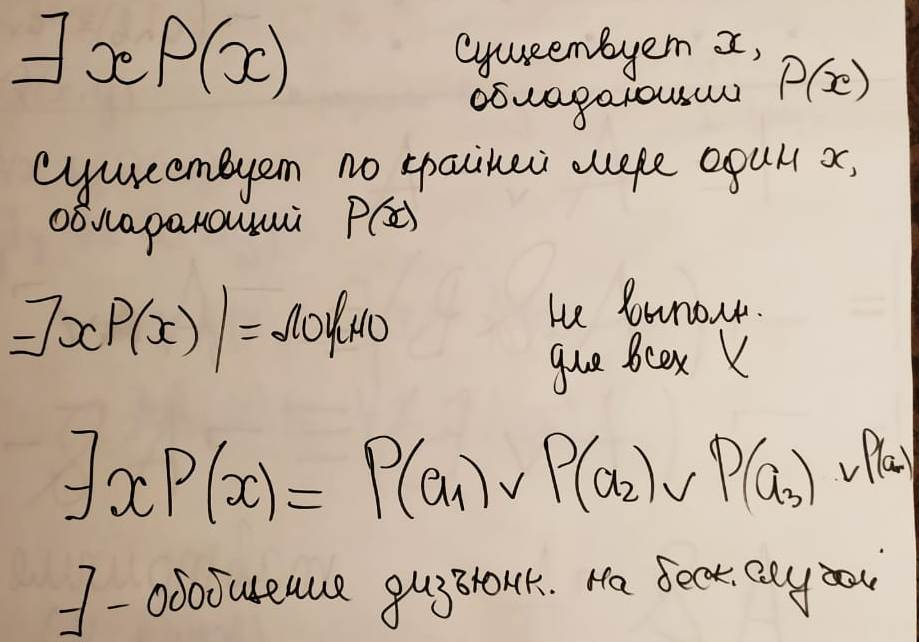 ∃ x P(x) существует x,
обладающий P(x)
существует по крайней мере один x,
обладающий P(x)
∃ x P(x) | = ложно не выполн.
для всех X
∃ x P(x) = P(a₁) ∨ P(a₂) ∨ P(a₃) ∨ P(aₙ)
∃ – обобщение дизъюнк. на беск. случай